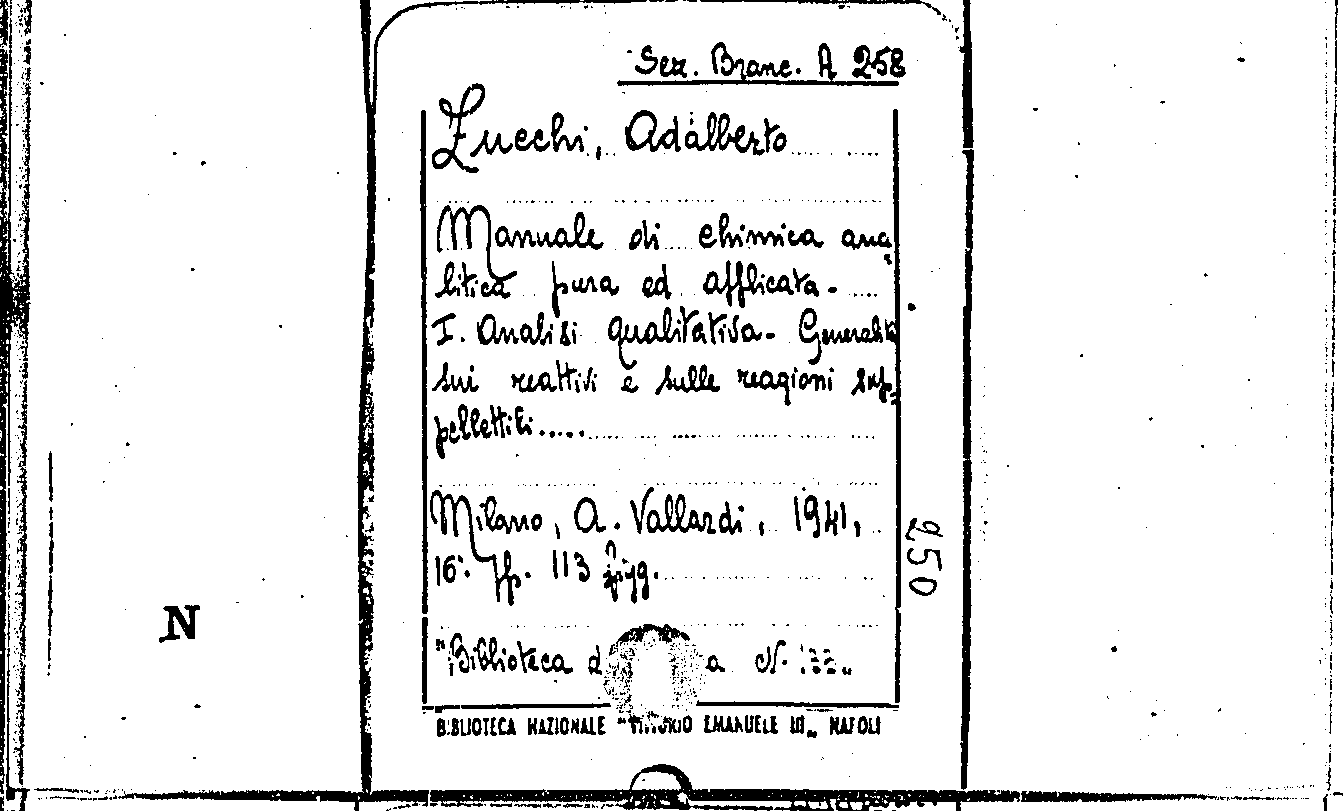 Sez. Branc. A 258
Zucchi, Adalberto
Manuale di chimica ana
litica pura ed applicata.
I. Analisi qualitativa. Generalità
sui reattivi e sulle reagioni sup=
pellettili.....
Milano, A. Vallardi, 1941,
16°. pp. 113 figg.
250
N
"Biblioteca d a N.
BIBLIOTECA NAZIONALE "VITTORIO EMANUELE III„ NAPOLI